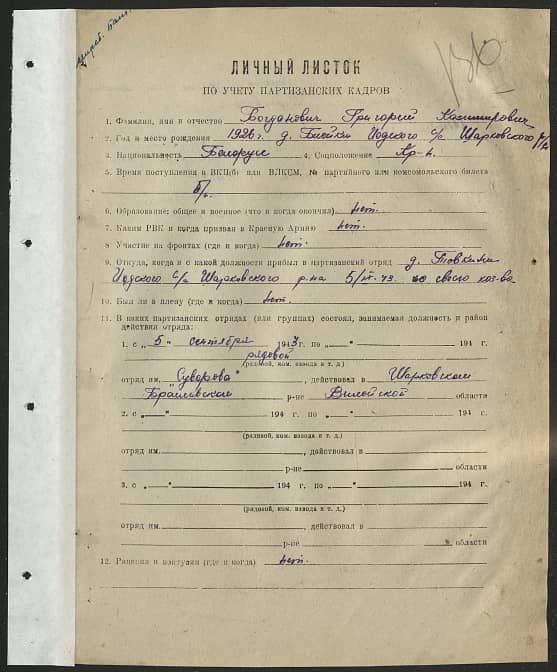 ЛИЧНЫЙ ЛИСТОК
ПО УЧЕТУ ПАРТИЗАНСКИХ КАДРОВ
1. Фамилия, имя и отчество Богданович Григорий Казимирович
2. Год и место рождения 1926 г. д. Иодского с/с Шарковского р/на
3. Национальность Белорус 4. Соцположение Кр-н.
5. Время поступления в ВКП(б) или ВЛКСМ, № партийного или комсомольского билета
б/п.
6. Образование: общее и военное (что и когда окончил) нет.
7. Каким РВК и когда призван в Красную Армию нет.
8 Участие на фронтах (где и когда) нет.
9. Откуда, когда и с какой должности прибыл в партизанский отряд д.
Иодского с/с Шарковского р-на 5/IX-43. со своего хоз-ва
10. Был ли в плену (где и когда) нет.
11. В каких партизанских отрядах (или группах) состоял, занимаемая должность и район
действия отряда:
1. с „ 5 “ сентября 1943 г. по „ “ 194 г.
рядовой
(рядовой, ком. взвода и т. д.)
отряд им. „Суворова“, действовал в Шарковском
Браславском р-не Вилейской области
2. с „ “ 194 г. по „ “ 194 г.
(рядовой, ком. взвода и т. д.)
отряд им. , действовал в
р-не области
3. с „ “ 194 г. по „ “ 194 г.
(рядовой, ком. взвода и т. д.)
отряд им. , действовал в
р-не области
12. Ранения и контузии (где и когда) нет.